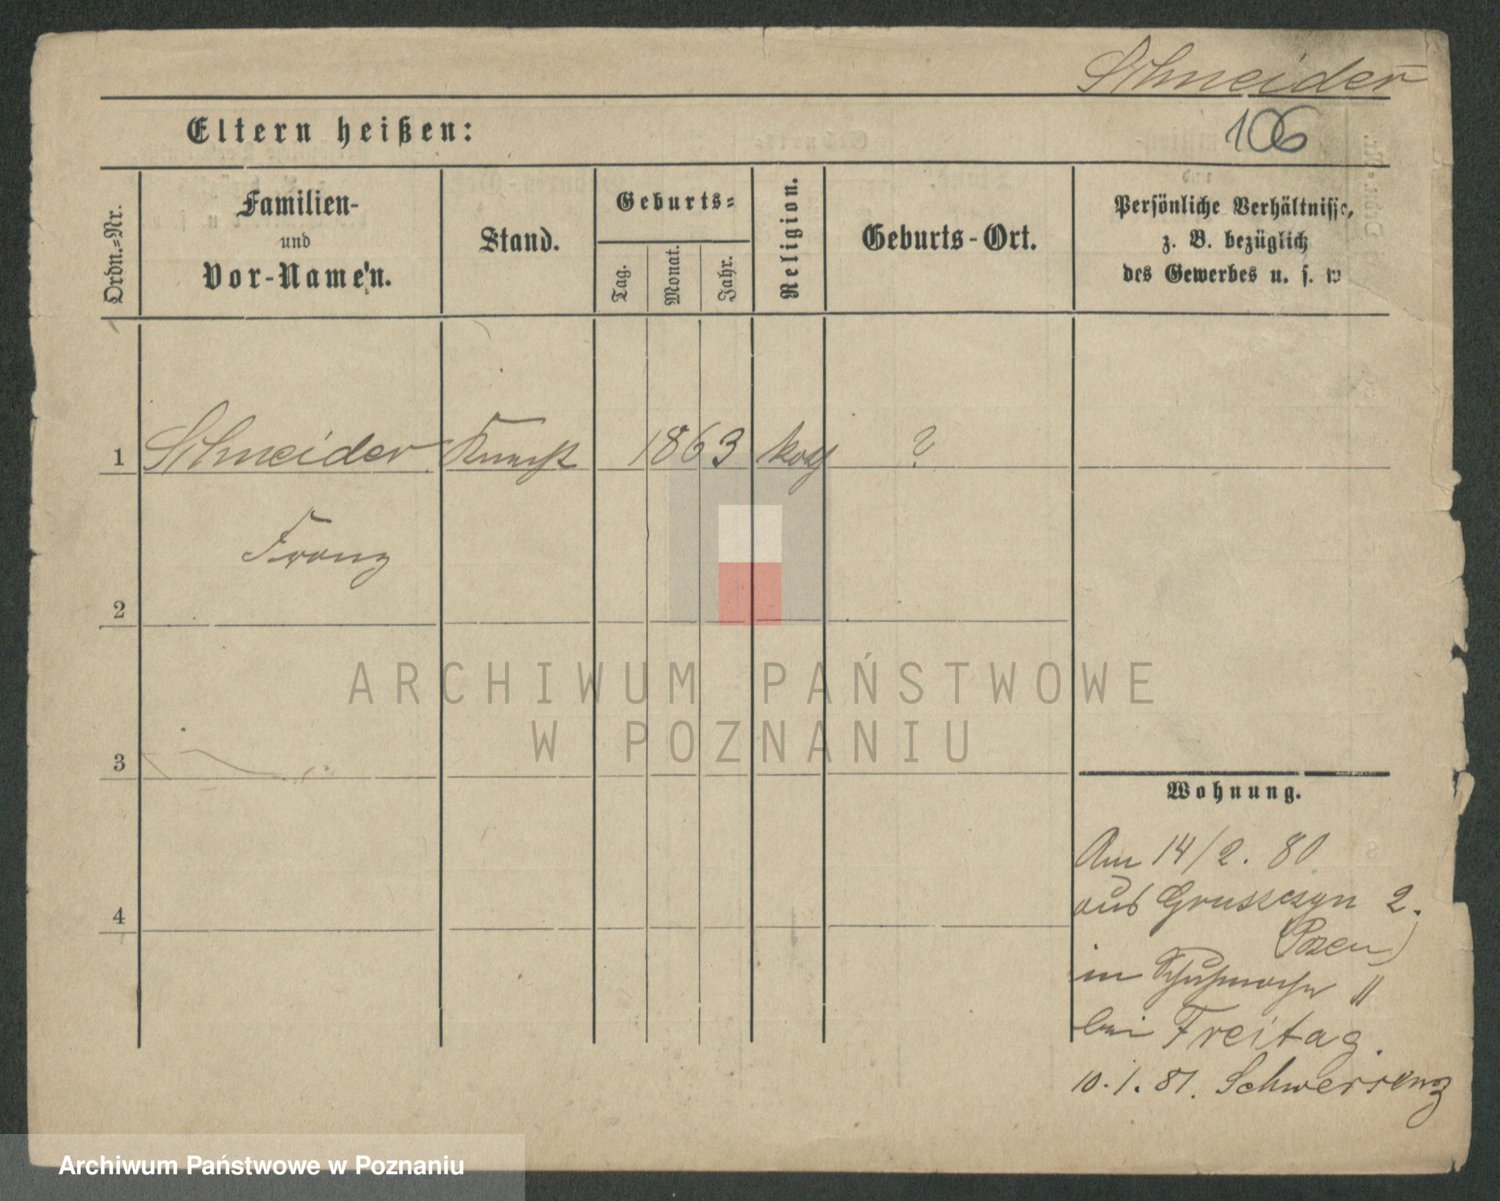 Schneider
106
Eltern heißen:
Ordn.=Nr.
Familien-
und
Vor-Namen.
Stand.
Geburts=
Tag.
Monat.
Jahr.
Religion.
Geburts-Ort.
Persönliche Verhältnisse,
z. B. bezüglich
des Gewerbes u. s. w
1 Schneider Knecht 1863 kath ?
Franz
2
3
4
ARCHIWUM PAŃSTWOWE
W POZNANIU
Wohnung.
Am 14/2. 80
aus Gruszczyn 2.
(Posen)
in 11
bei Freitag.
10. 1. 81. Schwersenz
Archiwum Państwowe w Poznaniu